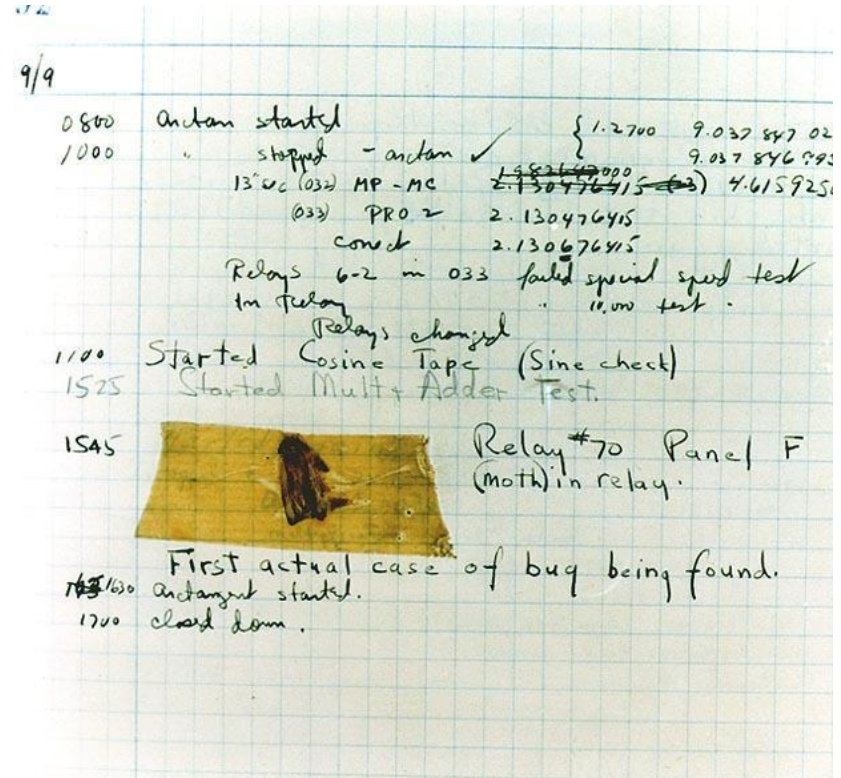 9/9
0800 arctan started { 1.2700 9.037 847 02
1000 " stopped - arctan ✓ 9.037 846
13"uc (032) MP - MC 2.130476415 4.615925
(033) PRO 2 2.130476415
conect 2.130676415
Relays 6-2 in 033 failed special speed test
In Relay " 10,000 test .
Relays changed
1100 Started Cosine Tape (Sine check)
1525 Started Mult + Adder Test.
1545 Relay #70 Panel F
(moth) in relay.
First actual case of bug being found.
1630 arctangent started.
1700 closed down .